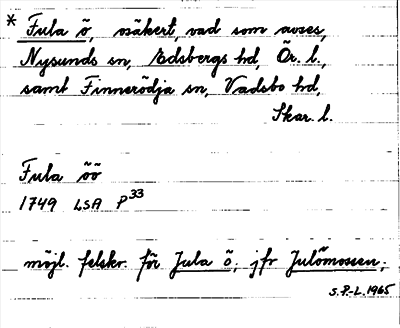 * Fula ö, osäkert, vad som avses,
Nysunds sn, Edsbergs hd, Ör. l.,
samt Finnerödja sn, Vadsbo hd,
Skar. l.
Fula öö
1749 LSA P33
möjl. felskr. för Jula ö, jfr Julömossen;
S.P.-L. 1965